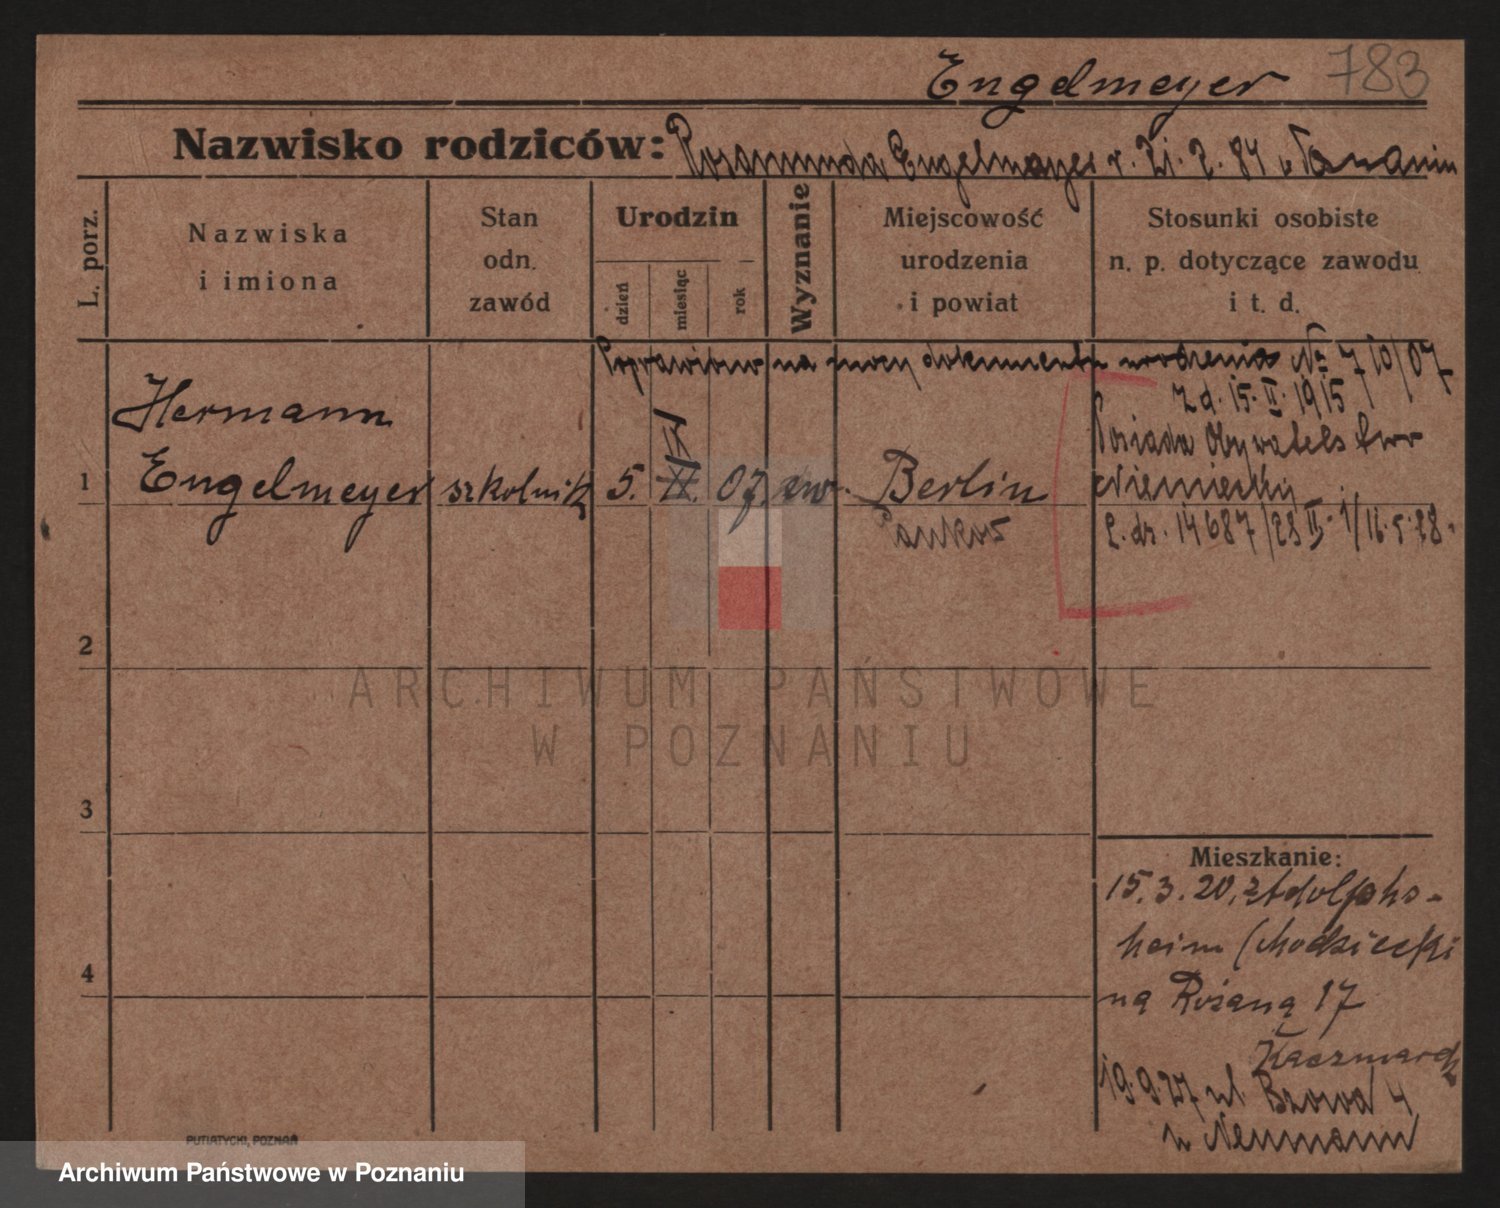 Engelmeyer 783
Nazwisko rodziców: Rosamunda Engelmayer r. 21. 2. 84
L. porz.
Nazwiska
i imiona
Stan
odn.
zawód
Urodzin
dzień
miesiąc
rok
Wyznanie
Miejscowość
urodzenia
i powiat
Stosunki osobiste
n. p. dotyczące zawodu
i t. d.
Poprawiono na mocy dokumentu urodzenia № 710/07
z d. 15. II. 1915
Hermann
1 Engelmeyer szkolnik 5. 07. ew. Berlin
Pankow
Posiada Obywatelstwo
Niemieckij
L. dz. 14687/28 II. 1/16.5.28.
2
3
4
ARCHIWUM PAŃSTWOWE
W POZNANIU
Mieszkanie:
15.3.20. z Adolphs-
heim (Chodzieski
na Różaną 17
Kaczmarek
19.9.27 ul. Bzowa 4
u Neumann
PUTIATYCKI, POZNAŃ
Archiwum Państwowe w Poznaniu